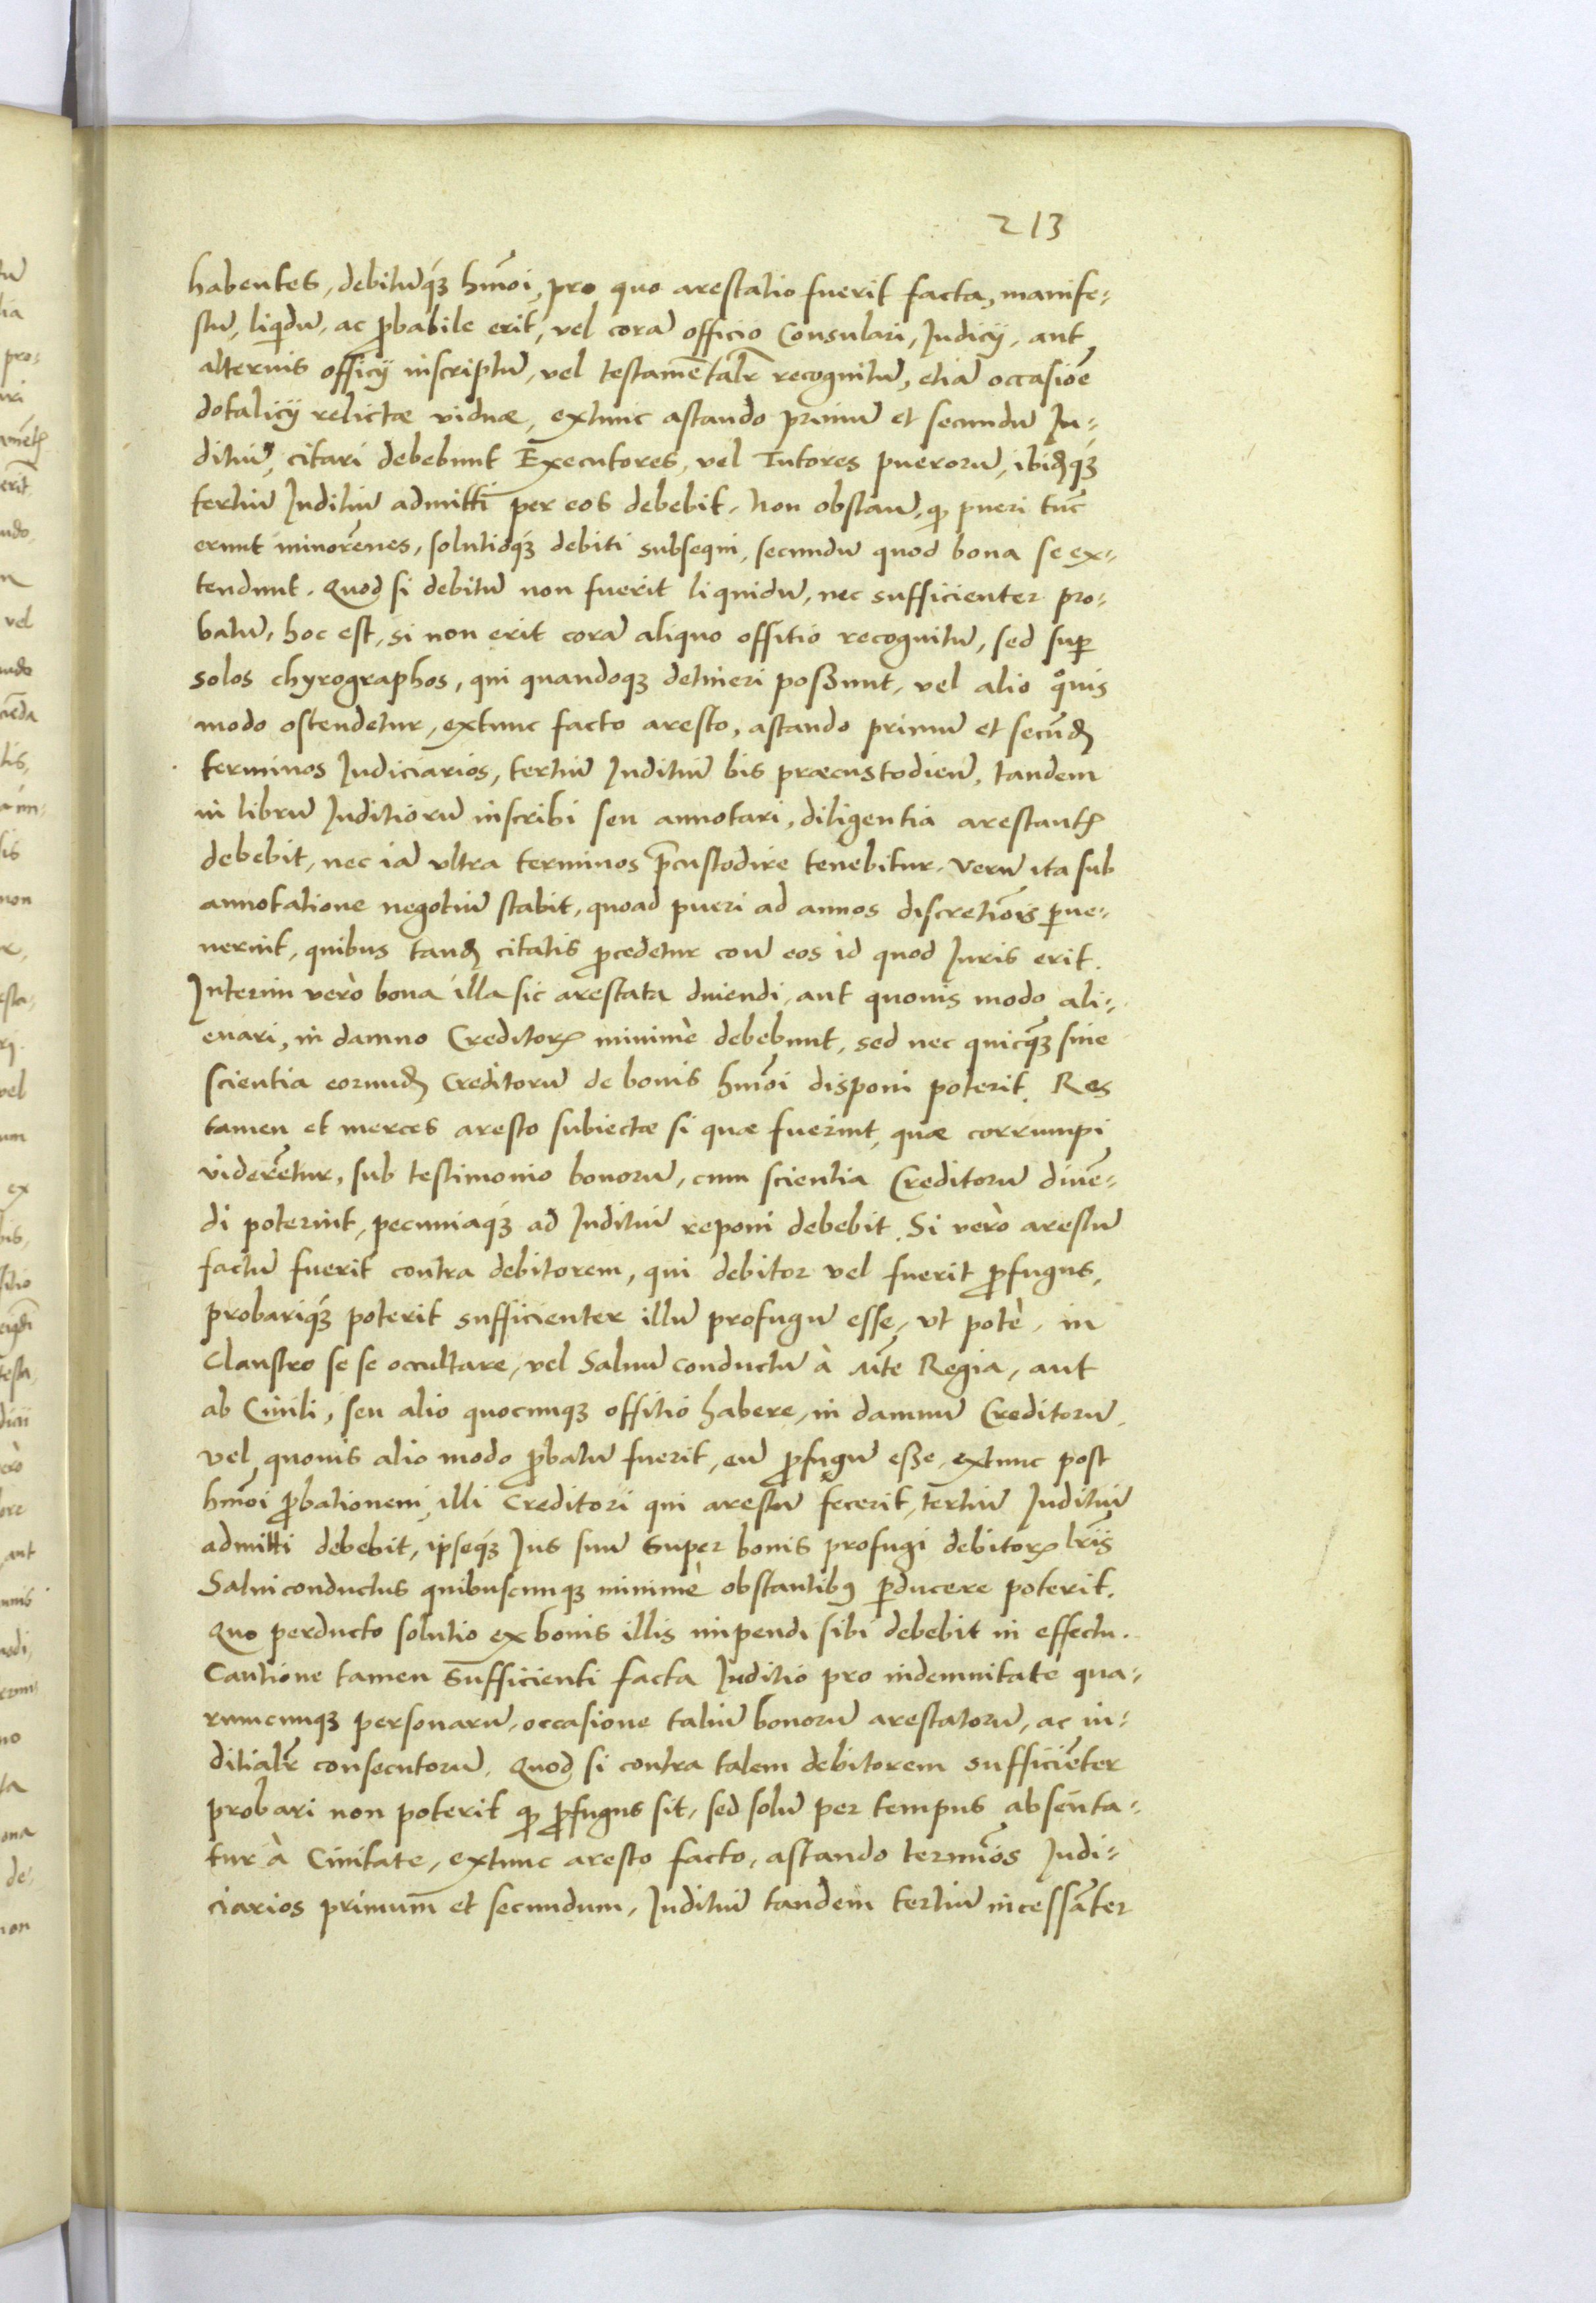 213
habentes, debitūq́ꝫ hm̄oi, pro quo arestatio fuerit facta, manife-
stū, liqͥdū, ac ꝓbabile erit, vel corā officio Consulari, Iudicij, aut
alterius officij inscriptū, vel testamētalr̄ recognitū, etiā occasiōe
dotalicij relictæ viduæ, extunc astando primū et secundū Iu-
ditiū, citari debebunt Executores, vel Tutores puerorū, ibidꝫq́ꝫ
tertiū Iuditiū admitti per eos debebit. Non obstan̄, qꝫ pueri tūc
erunt minorēnes, solutioq́ꝫ debiti subsequi, secundū quod bona se ex-
tendunt. Quod si debitū non fuerit liquidū, nec sufficienter pro-
batū, hoc est, si non erit corā aliquo offitio recognitū, sed suꝑ
solos chyrographos, qui quandoqꝫ detineri possunt, vel alio qͦuis
modo ostendetur, extunc facto aresto, astando primū et secūdꝫ
terminos Iudiciarios, tertiū Iuditiū bis præcustodien̄, tandem
in librū Iuditiorū inscribi seu annotari, diligentia arestantꝭ
debebit, nec iā vltra terminos p̄custodire tenebitur. Verū ita sub
annotatione negotiū stabit, quoad pueri ad annos discretiōis ꝑue-
nerint, quibus tandꝫ citatis ꝓcedetur con̄ eos id quod Iuris erit.
Interim verò bona illa sic arestata diuendi, aut quouis modo ali-
enari, in damno Creditorꝝ minimè debebunt, sed nec quicq̄ꝫ sine
scientia eorundꝫ Creditorū de bonis hm̄oi disponi poterit. Res
tamen et merces aresto subiectæ si quæ fuerint, quæ corrumpi
viderētur, sub testimonio bonorū, cum scientia Creditorū diuē-
di poterint, pecuniaq́ꝫ ad Iuditiū reponi debebit. Si verò arestū
factū fuerit contra debitorem, qui debitor vel fuerit ꝓfugus,
probariq́ꝫ poterit sufficienter illū profugū esse, vt potè, in
Claustro se se occultare, vel Saluū conductū à Mt̄e Regia, aut
ab Ciuili, seu alio quocunqꝫ offitio habere, in damnū Creditorū
vel quouis alio modo ꝓbatū fuerit, eū ꝓfugū esse, extunc post
hm̄oi ꝓbationem, illi Creditori qui arestū fecerit, tertiū Iuditiū
admitti debebit, ipseq́ꝫ Ius suū super bonis profugi debitorꝭ lr̄is
Saluiconductus quibuscunqꝫ minimè obstantibꝰ ꝑducere poterit.
Quo perducto solutio ex bonis illis impendi sibi debebit in effectu.
Cautione tamen sufficienti facta Iuditio pro indemnitate qua-
rumcunqꝫ personarū, occasione taliū bonorū arestatorū, ac iu-
ditialr̄ consecutorū. Quod si contra talem debitorem sufficiēter
probari non poterit qꝫ ꝓfugus sit, sed solū per tempus absenta-
tur à Ciuitate, extunc aresto facto, astando termīos Iudi-
ciarios primum et secundum, Iuditiū tandem tertiū incessāter